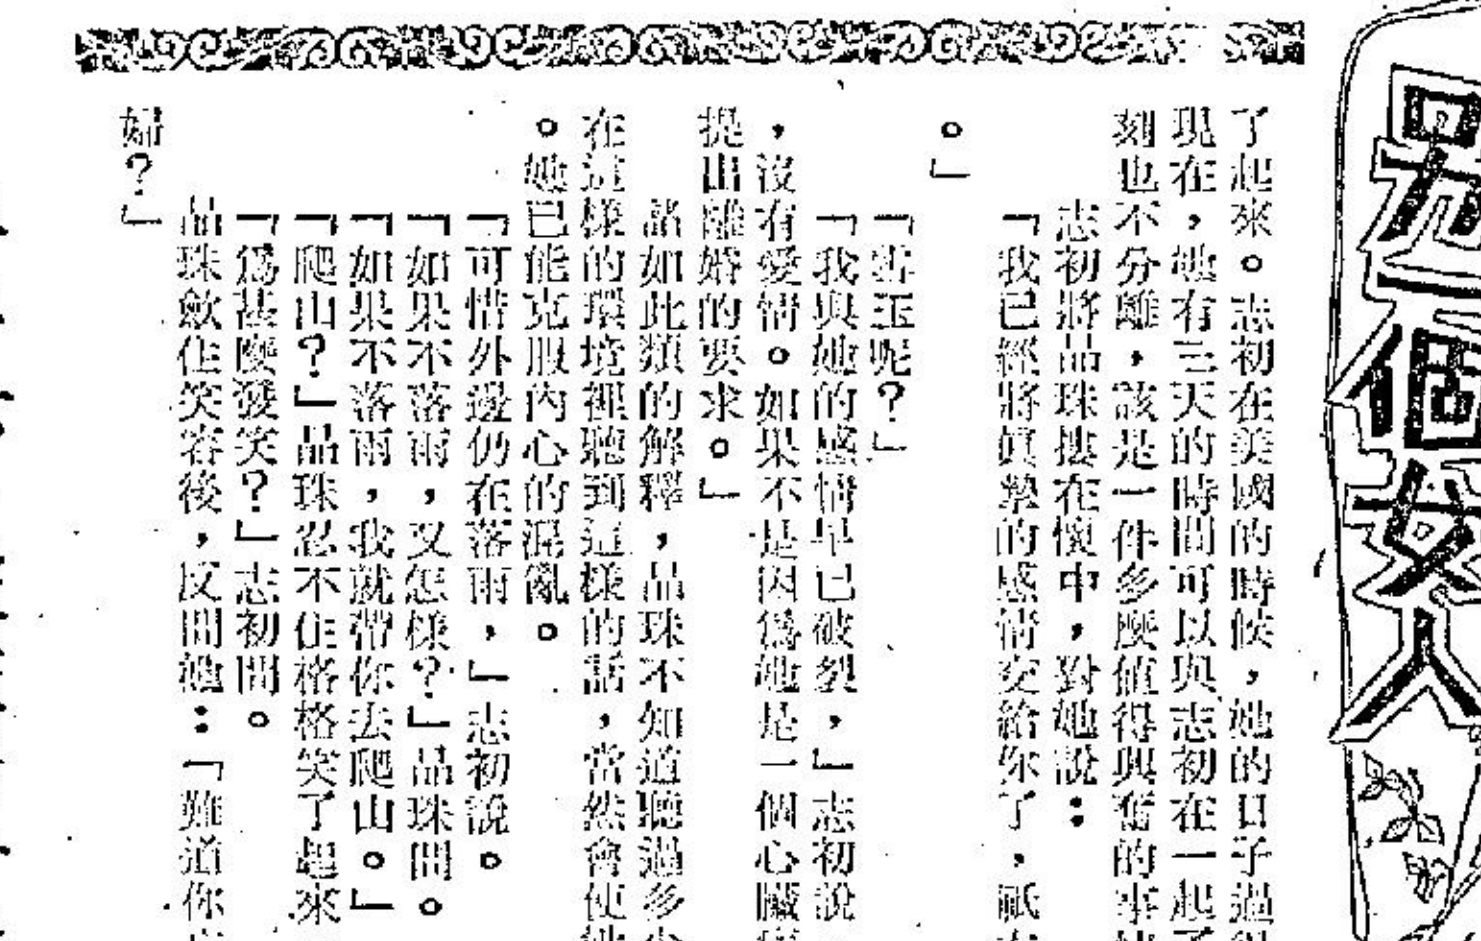 另一個女人
了起來。志初在美國的時候,她的日子過得
現在,她有三天的時間可以與志初在一起了
刻也不分離,該是一件多麼值得興奮的事情
志初將品珠摟在懷中,對她說:
「我已經將眞摯的感情交給你了,祇
。」
「雪玉呢?」
「我與她的感情早已破裂,」志初說
,沒有愛情。如果不是因爲她是一個心臟病
提出離婚的要求。」
諸如此類的解釋,品珠不知道聽過多少
在這樣的環境裡聽到這樣的話,當然會使她
。她已能克服內心的混亂。
「可惜外邊仍在落雨,」志初說。
「如果不落雨,又怎樣?」品珠問。
「如果不落雨,我就帶你去爬山。」
「爬山?」品珠忍不住格格笑了起來
「爲甚麼發笑?」志初問。
品珠歛住笑容後,反問他:「難道你
婦?」